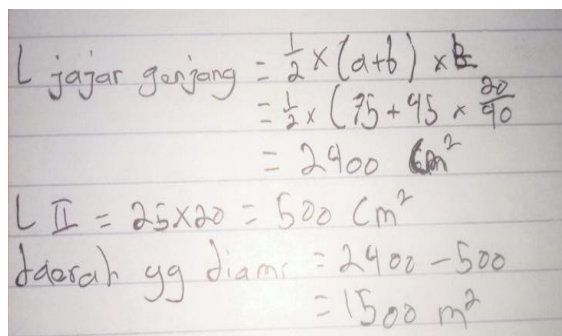 L jajar genjang = 1/2 × (a+b) × t
= 1/2 × (75 + 45 × 20/40
= 2400 cm²
L II = 25×20 = 500 cm²
daerah yg diami = 2400 - 500
= 1500 m²